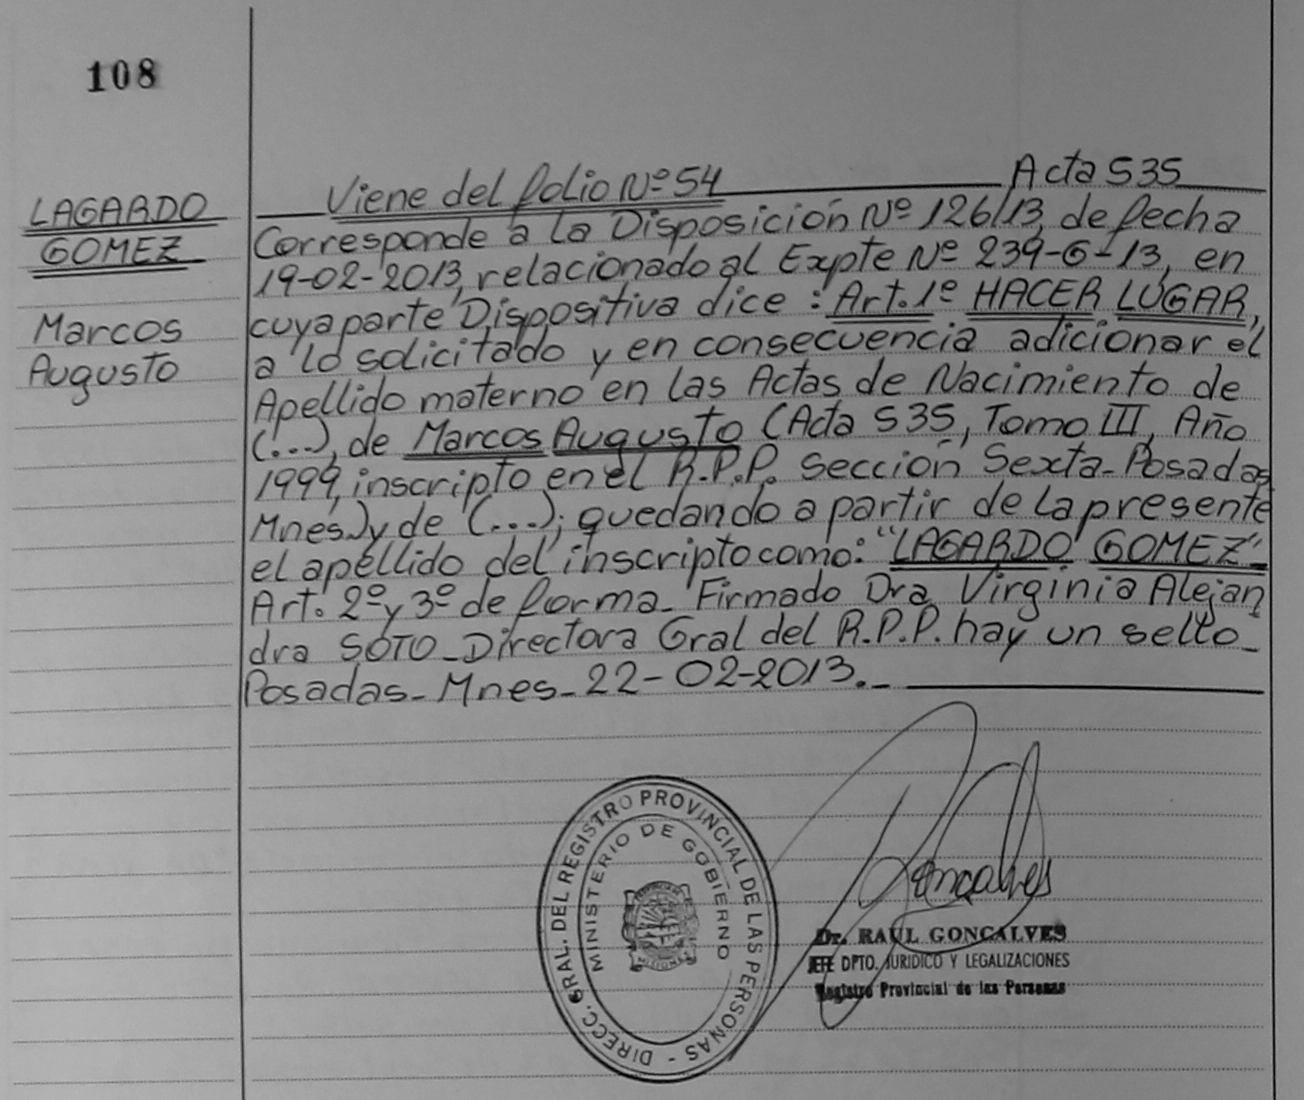 108
LAGARDO
GOMEZ
Marcos
Augusto
Viene del folio Nº 54 Acta 535
Corresponde a la Disposición Nº 126/13, de fecha
19-02-2013, relacionado al Expte Nº 239-G-13, en
cuya parte Dispositiva dice : Art. 1º HACER LUGAR,
a lo solicitado y en consecuencia adicionar el
Apellido materno en las Actas de Nacimiento de
(...), de Marcos Augusto (Acta 535, Tomo III, Año
1999, inscripto en el R.P.P. Sección Sexta-Posadas
Mnes) y de (...); quedando a partir de la presente
el apellido del inscripto como: "LAGARDO GOMEZ"_
Art. 2º y 3º de forma_ Firmado Dra Virginia Alejan
dra SOTO_Directora Gral del R.P.P. hay un sello_
Posadas_Mnes_22-02-2013._
DIRECC. GRAL. DEL REGISTRO PROVINCIAL DE LAS PERSONAS -
MINISTERIO DE GOBIERNO
MISIONES
Goncalves
Dr. RAUL GONCALVES
JEFE DPTO. JURIDICO Y LEGALIZACIONES
Registro Provincial de las Personas